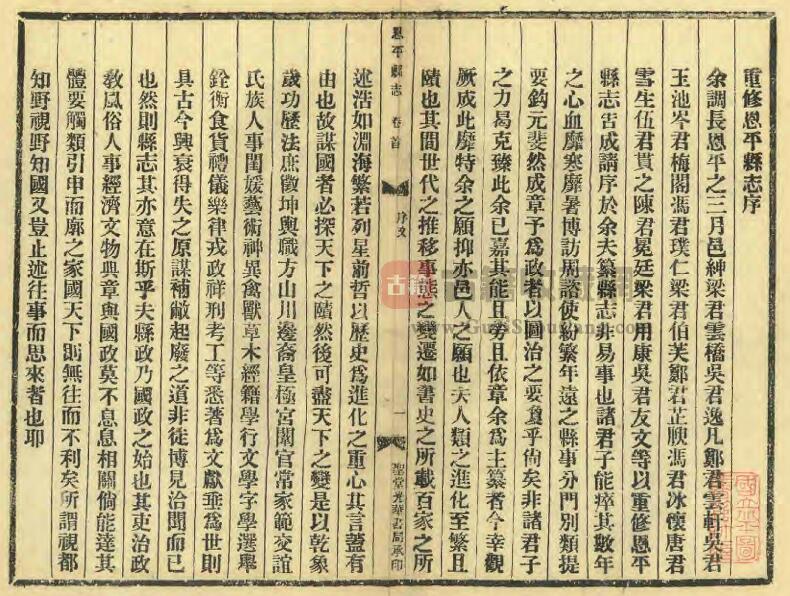 重修恩平縣志序
余調長恩平之三月邑紳梁君雲橋吳君逸凡鄭君雲軒吳君
玉池岑君梅閣馮君璞仁梁君伯芙鄭君芷願馮君冰懷唐君
雪生伍君貫之陳君冕廷梁君用康吳君友文等以重修恩平
縣志告成請序於余夫纂縣志非易事也諸君子能瘁其數年
之心血靡寒靡暑博訪周諮使紛繁年遠之縣事分門別類提
要鈎元斐然成章予爲政者以圖治之要敻乎尙矣非諸君子
之力易克臻此余已嘉其能且勞且依章余爲主纂者今幸觀
厥成此靡特余之願抑亦邑人之願也夫人類之進化至繁且
賾也其間世代之推移事態之變遷如書史之所載百家之所
恩平縣志 卷首 序文 一 聖堂光華書局承印
述浩如淵海繁若列星前哲以歷史爲進化之重心其言蓋有
由也故謀國者必探天下之賾然後可盡天下之變是以乾象
歲功歷法庶徵坤輿職方山川邊裔皇極宮闈官常家範交誼
氏族人事閨媛藝術神異禽獸草木經籍學行文學字學選舉
銓衡食貨禮儀樂律戎政祥刑考工等悉著爲文獻垂爲世則
具古今興衰得失之原謀補敝起廢之道非徒博見洽聞而已
也然則縣志其亦意在斯乎夫縣政乃國政之始也其吏治政
敎風俗人事經濟文物典章與國政莫不息息相關倘能達其
體要觸類引申而廓之家國天下則無往而不利矣所謂視都
知野視野知國又豈止述往事而思來者也耶
古籍